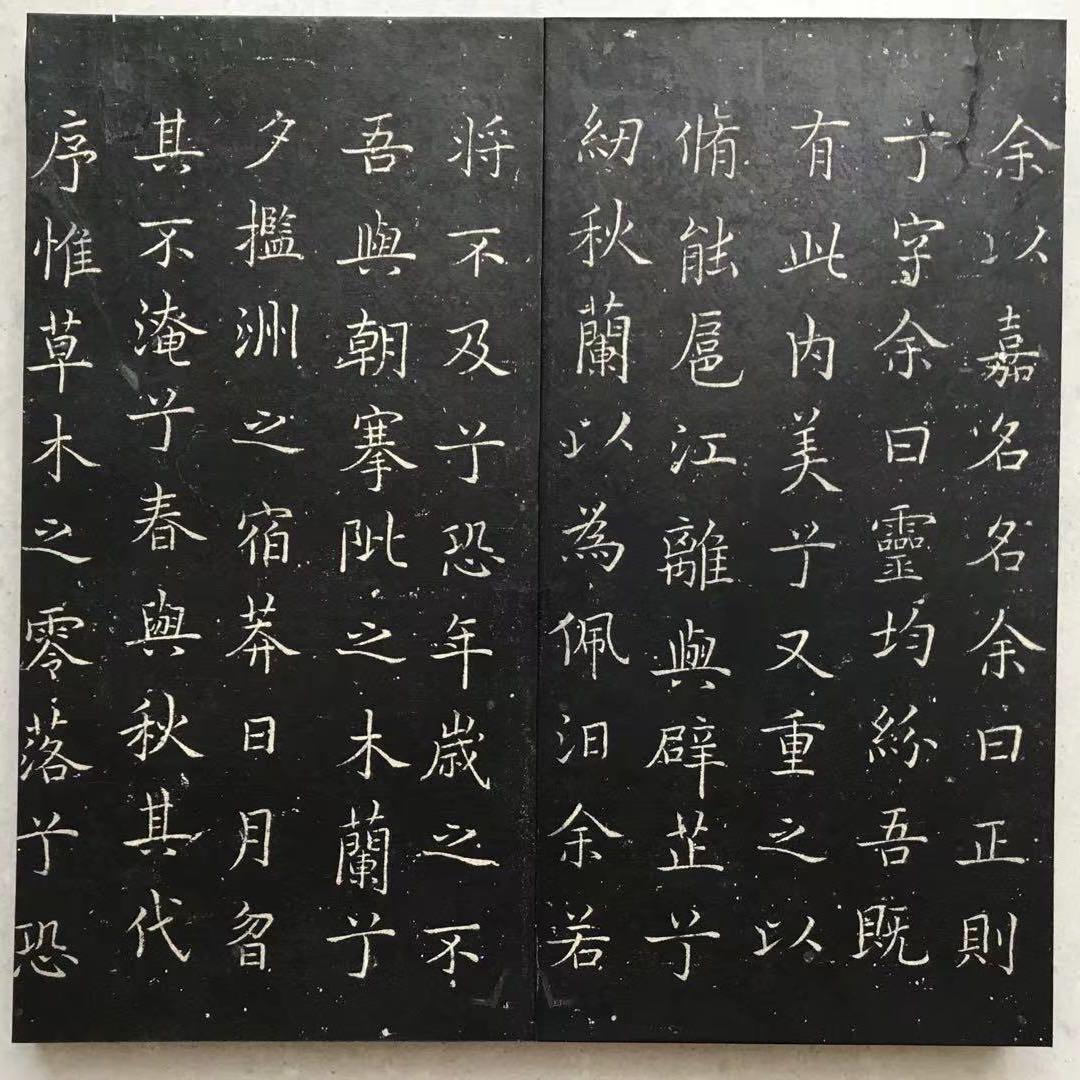 余以嘉名名余曰正則
兮字余曰靈均紛吾既
有此内美兮又重之以
脩能扈江離與辟芷兮
紉秋蘭以為佩汨余若
将不及兮恐年歲之不
吾與朝搴阰之木蘭兮
夕擥洲之宿莽日月曶
其不淹兮春與秋其代
序惟草木之零落兮恐